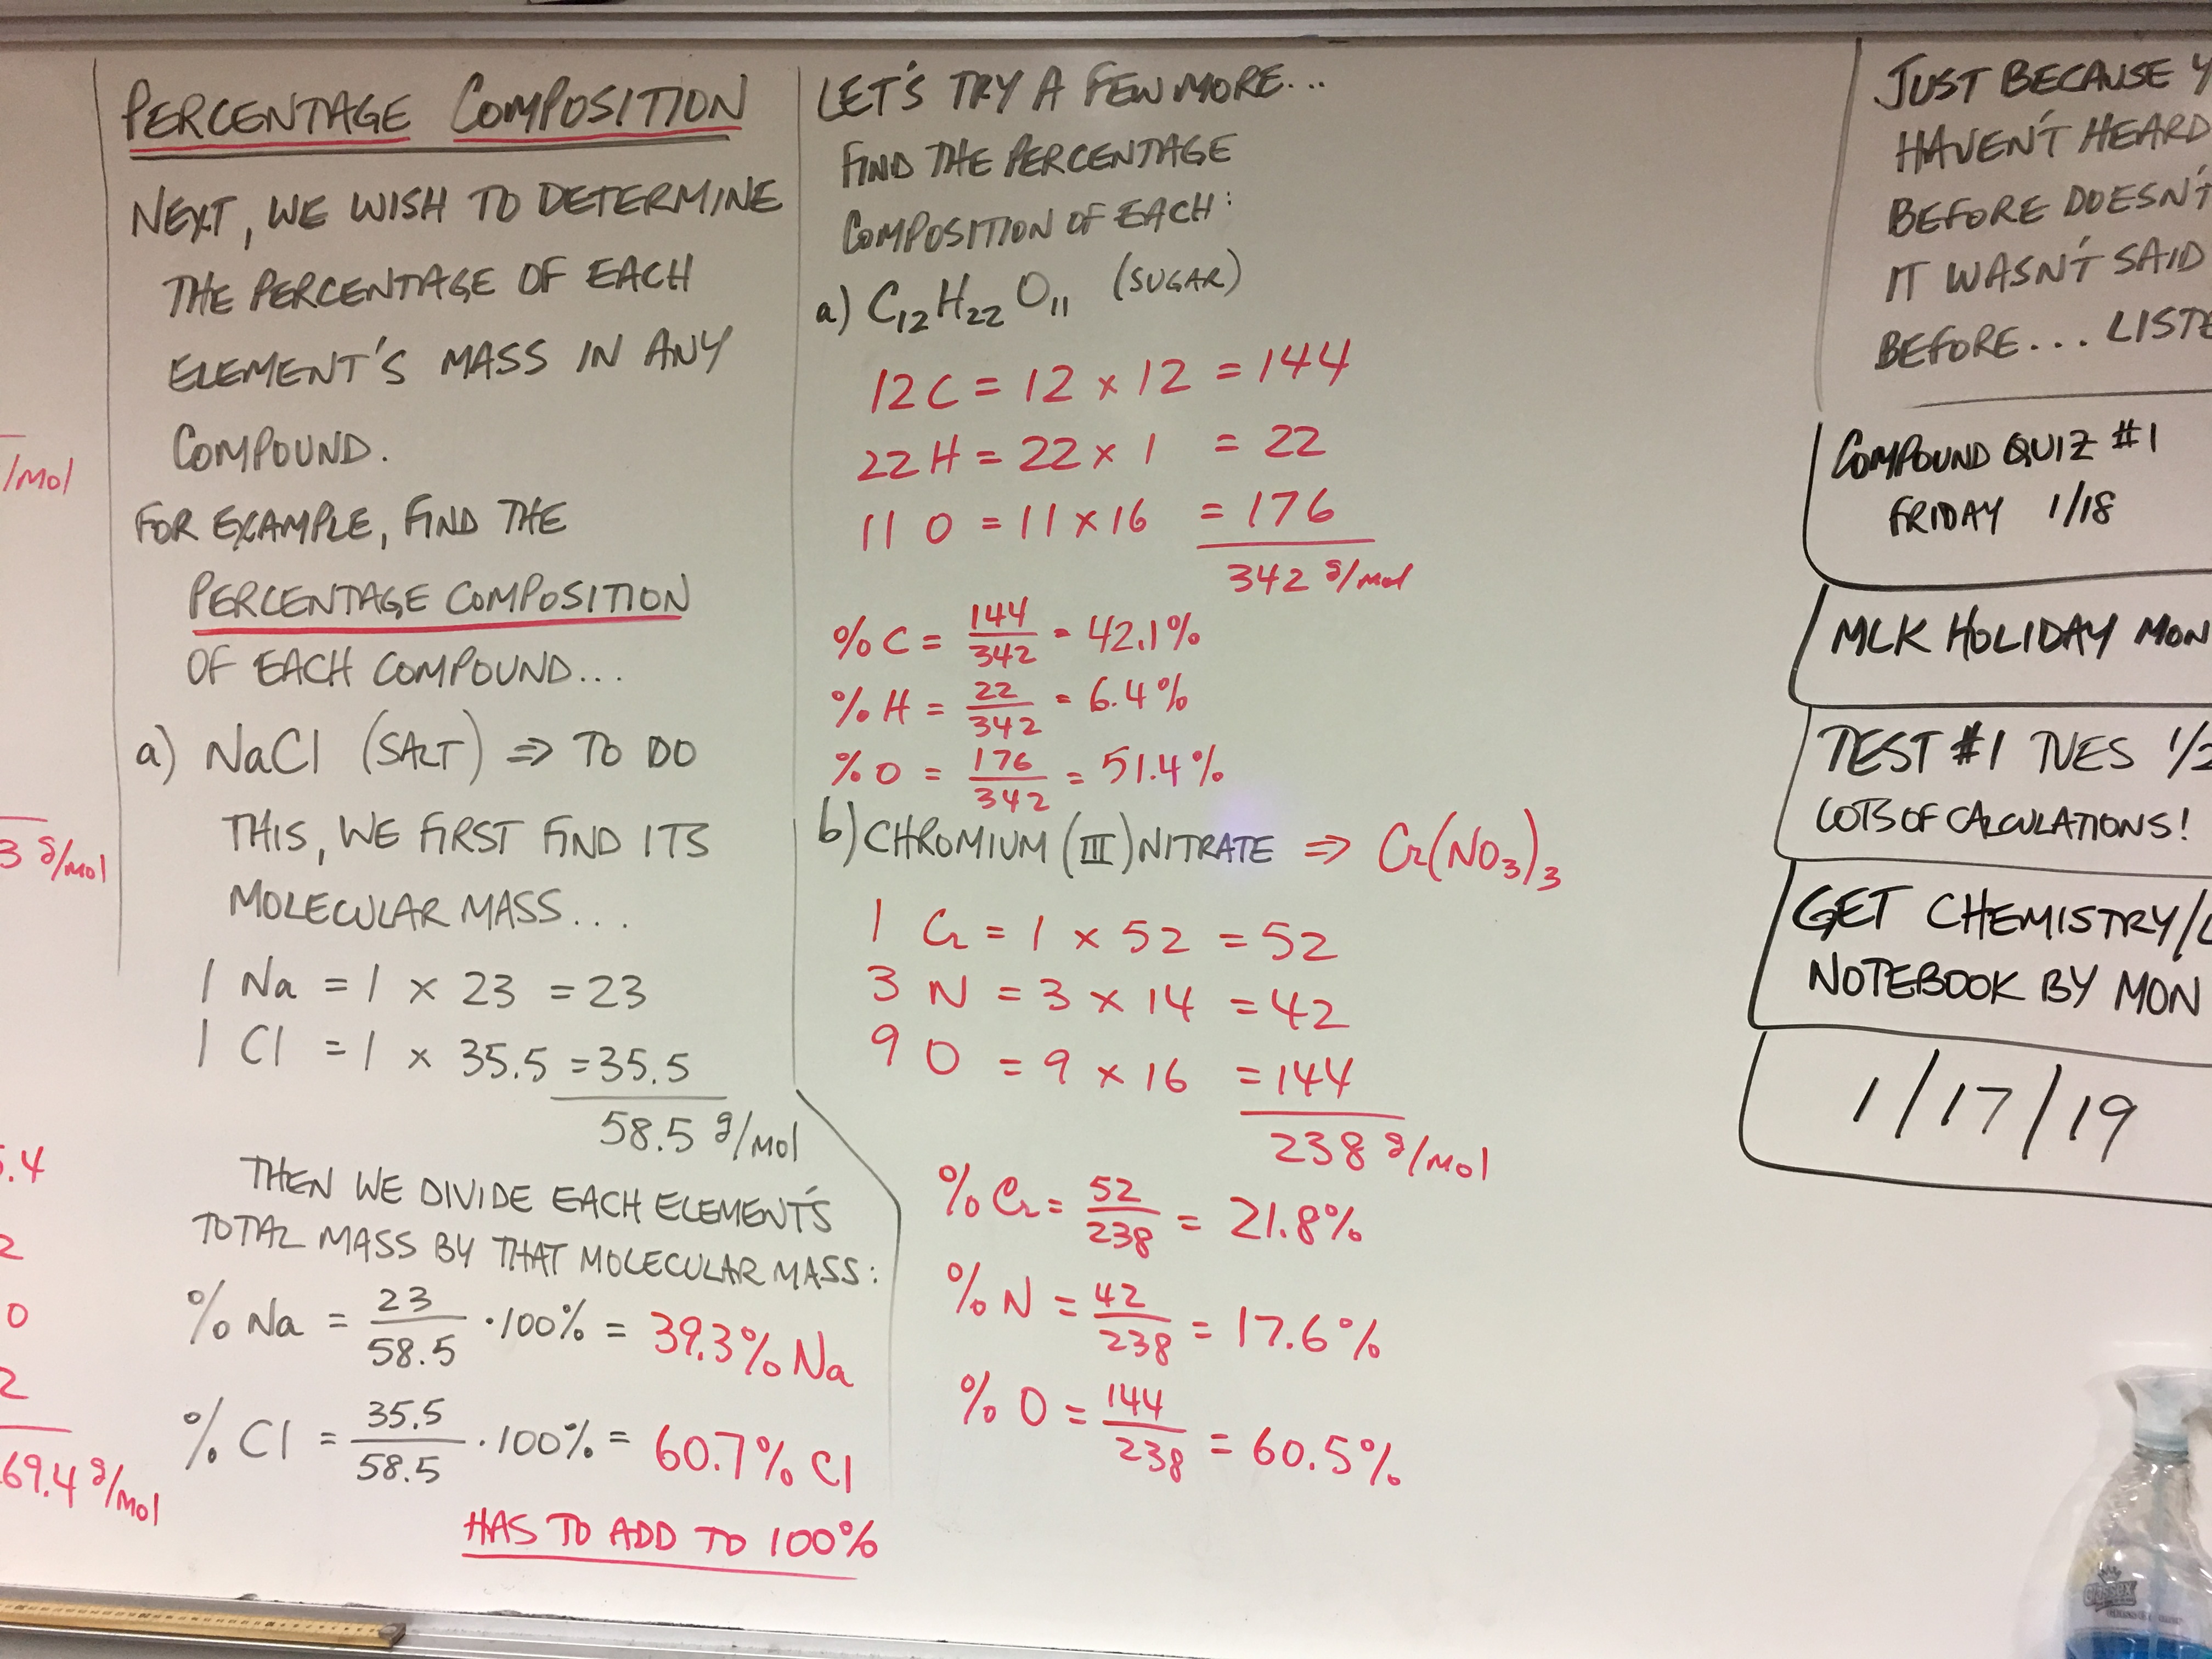 /mol
3 g/mol
5.4
2
0
2
69.4 g/mol
PERCENTAGE COMPOSITION
NEXT, WE WISH TO DETERMINE
THE PERCENTAGE OF EACH
ELEMENT'S MASS IN ANY
COMPOUND.
FOR EXAMPLE, FIND THE
PERCENTAGE COMPOSITION
OF EACH COMPOUND...
a) NaCl (SALT) ⇒ TO DO
THIS, WE FIRST FIND ITS
MOLECULAR MASS...
1 Na = 1 x 23 = 23
1 Cl = 1 x 35.5 = 35.5
58.5 g/mol
THEN WE DIVIDE EACH ELEMENT'S
TOTAL MASS BY THAT MOLECULAR MASS:
% Na = 23/58.5 · 100% = 39.3% Na
% Cl = 35.5/58.5 · 100% = 60.7% Cl
HAS TO ADD TO 100%
LET'S TRY A FEW MORE...
FIND THE PERCENTAGE
COMPOSITION OF EACH:
a) C₁₂H₂₂O₁₁ (SUGAR)
12 C = 12 x 12 = 144
22 H = 22 x 1 = 22
11 O = 11 x 16 = 176
342 g/mol
% C = 144/342 = 42.1%
% H = 22/342 = 6.4%
% O = 176/342 = 51.4%
b) CHROMIUM (III) NITRATE ⇒ Cr(NO₃)₃
1 Cr = 1 x 52 = 52
3 N = 3 x 14 = 42
9 O = 9 x 16 = 144
238 g/mol
% Cr = 52/238 = 21.8%
% N = 42/238 = 17.6%
% O = 144/238 = 60.5%
JUST BECAUSE Y
HAVEN'T HEARD
BEFORE DOESN'T
IT WASN'T SAID
BEFORE... LISTE
COMPOUND QUIZ #1
FRIDAY 1/18
MLK HOLIDAY MON
TEST #1 TUES 1/2
LOTS OF CALCULATIONS!
GET CHEMISTRY/L
NOTEBOOK BY MON
1/17/19